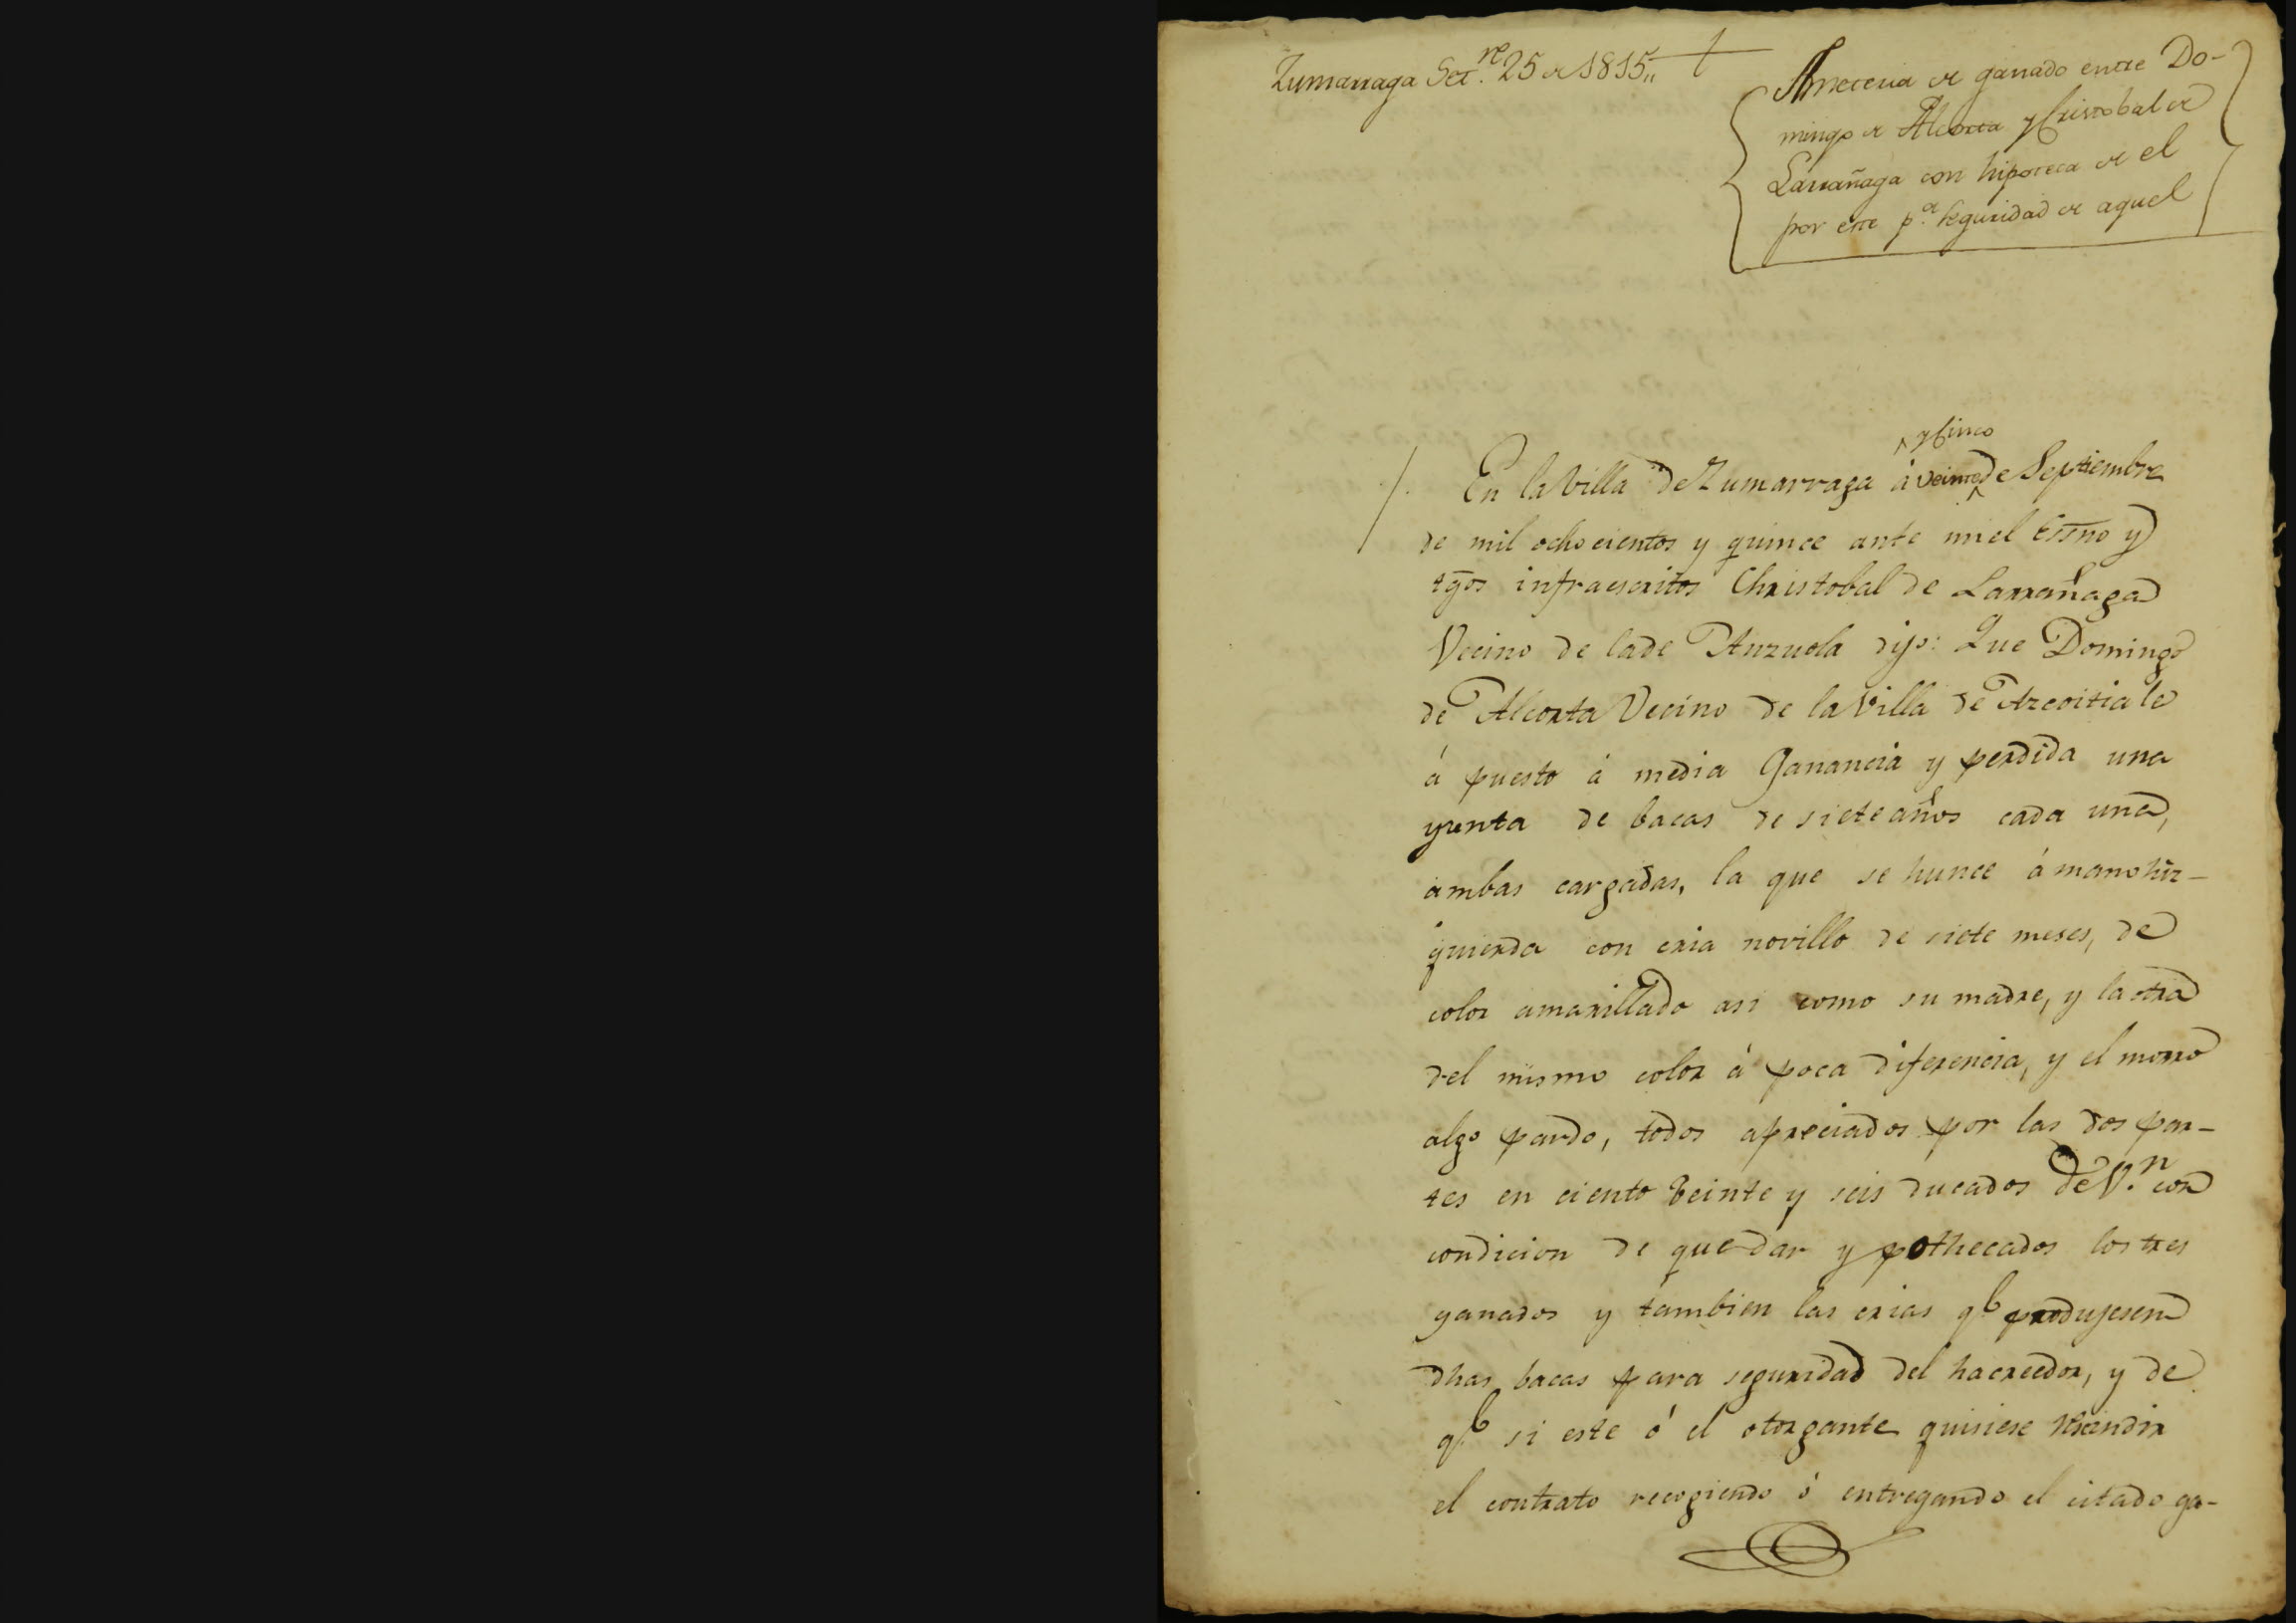 Zumarraga Set.re 25 de 1815,,
Ameteria de ganado entre Do-
mingo de Alcorta y Cristobal de
Larrañaga con hipoteca de el
por este p.a seguridad de aquel
y Cinco
En la Villa de Zumarraga á veinte de Septiembre
de mil ochocientos y quince ante mi el Essno y
tgos infraescritos Christobal de Larrañaga
Vecino de la de Anzuola dijo: Que Domingo
de Alcorta Vecino de la Villa de Azcoitia le
á puesto á media Ganancia y perdida una
yunta de bacas de siete años cada una,
ambas cargadas, la que se hunce á mano hiz-
quierda con cria novillo de siete meses, de
color amarillado asi como su madre, y la otra
del mismo color á poca diferencia, y el morro
algo pardo, todos apreciados por las dos par-
tes en ciento veinte y seis ducados de V.n con
condicion de quedar ypothecados los tres
ganados y tambien las crias q.e produjesen
dhas bacas para seguridad del hacreedor, y de
q.e si este ó el otorgante quisiese rescindir
el contrato recogiendo ó entregando el citado ga-